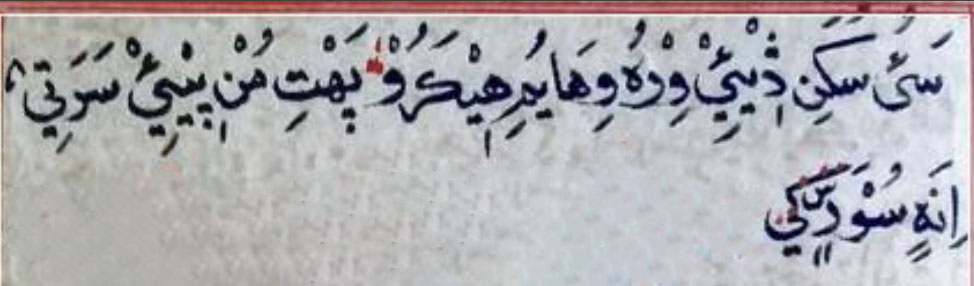 سَئُ سَکَنِ ڎِيْئِيْ وِرْهُ وِهَايُمِ هِيْکَرُوْ پَهْتِ مُنْ پِيْئِيْ سَرَتِيْ
اِنَهٖ سُوْدَ کِيْ